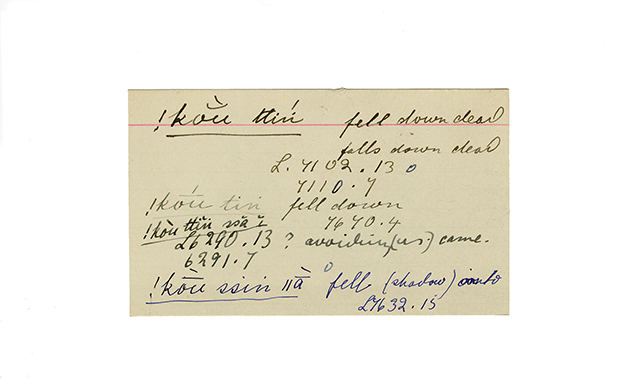 !kŏū ttíń fell down dead
falls down dead
L. 7102. 13 0
7110. 7
!kŏū tiń fell down
!kŏū ttiń ssā ĭ 7670. 4
L6290. 13 ? avoiding(us) came.
6291. 7
!kŏū ssin ǁā̀ fell (shadow) onto
L7632. 15